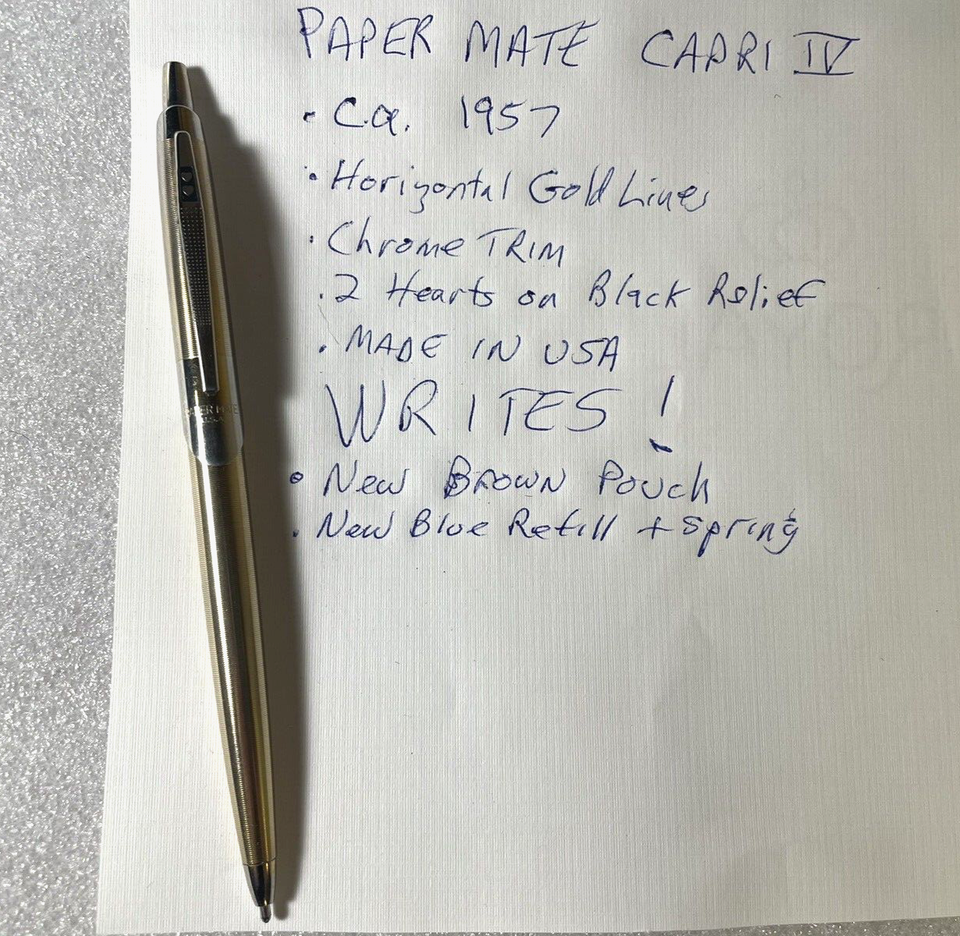 PAPER MATE CAPRI IV
• Ca. 1957
• Horizontal Gold Lines
• Chrome TRIM
• 2 Hearts on Black Relief
• MADE IN USA
WRITES!
• New BROWN Pouch
• New Blue Refill + Spring
PAPER MATE